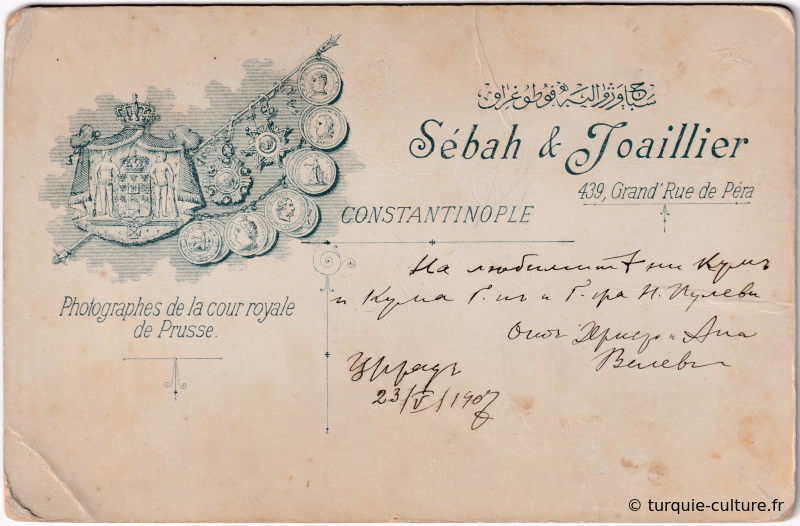 سباح و ژوالیه فوطوغراف
Sébah & Joaillier
439, Grand'Rue de Péra
CONSTANTINOPLE
Photographes de la cour royale
de Prusse.
На любимитѣ ни Кумъ
и Кума Г-нъ и Г-жа Н. Пулеви
Отъ и Ана
Велеви
Цариградъ
23/V/1907
© turquie-culture.fr